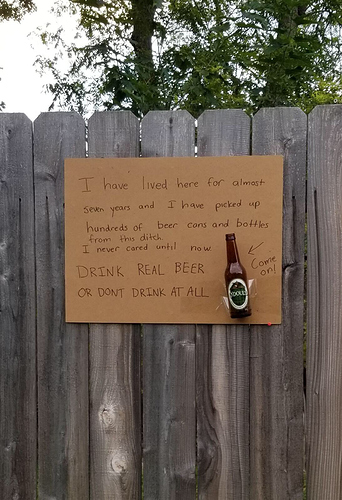 I have lived here for almost
seven years and I have picked up
hundreds of beer cans and bottles
from this ditch.
I never cared until now.
DRINK REAL BEER
OR DONT DRINK AT ALL
Come
on!